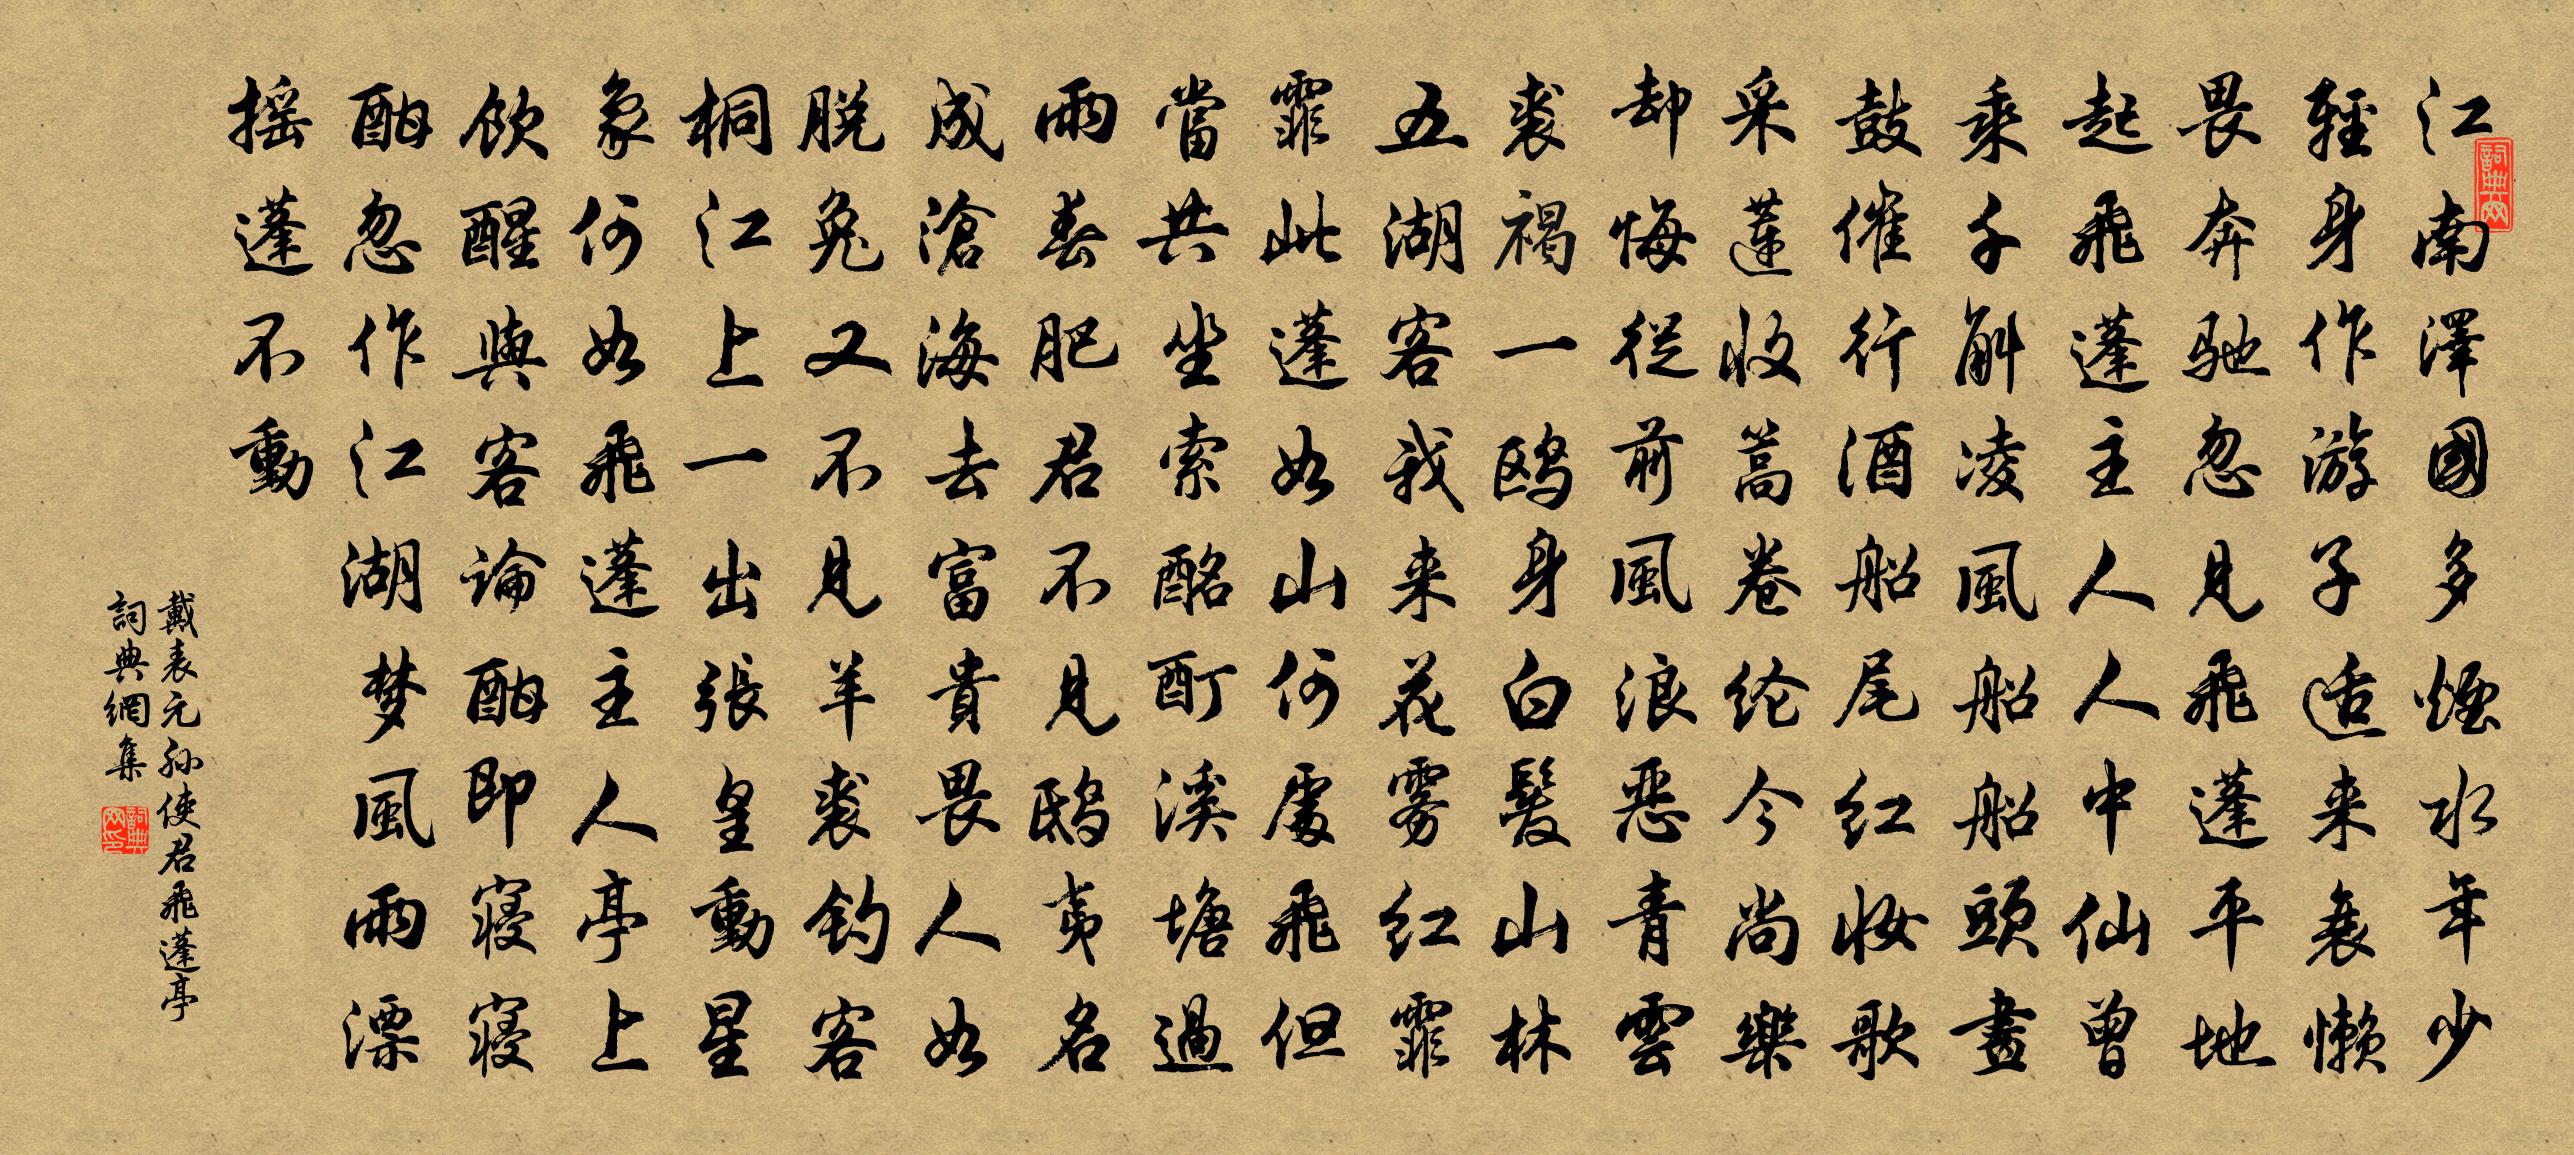 江南澤國多煙水年少
輕身作游子适来衰懒
畏奔馳忽見飛蓬平地
起飛蓬主人人中仙曾
乘千斛凌風船船頭畫
鼓催行酒船尾红妝歌
采蓮收蒿卷纶今尚樂
却悔從前風浪恶青雲
裘褐一鸥身白髮山林
五湖客我来花雾红霏
霏此蓬如山何處飛但
當共坐索酩酊溪塘過
雨春肥君不見鴟夷名
成滄海去富貴畏人如
脱兔又不見羊裘钓客
桐江上一出張皇動星
象何如飛蓬主人亭上
飲醒與客論酣即寝寝
酣忽作江湖梦風雨漂
摇蓬不動
戴表元孙使君飛蓬亭
詞典網集
詞典网
詞典网印